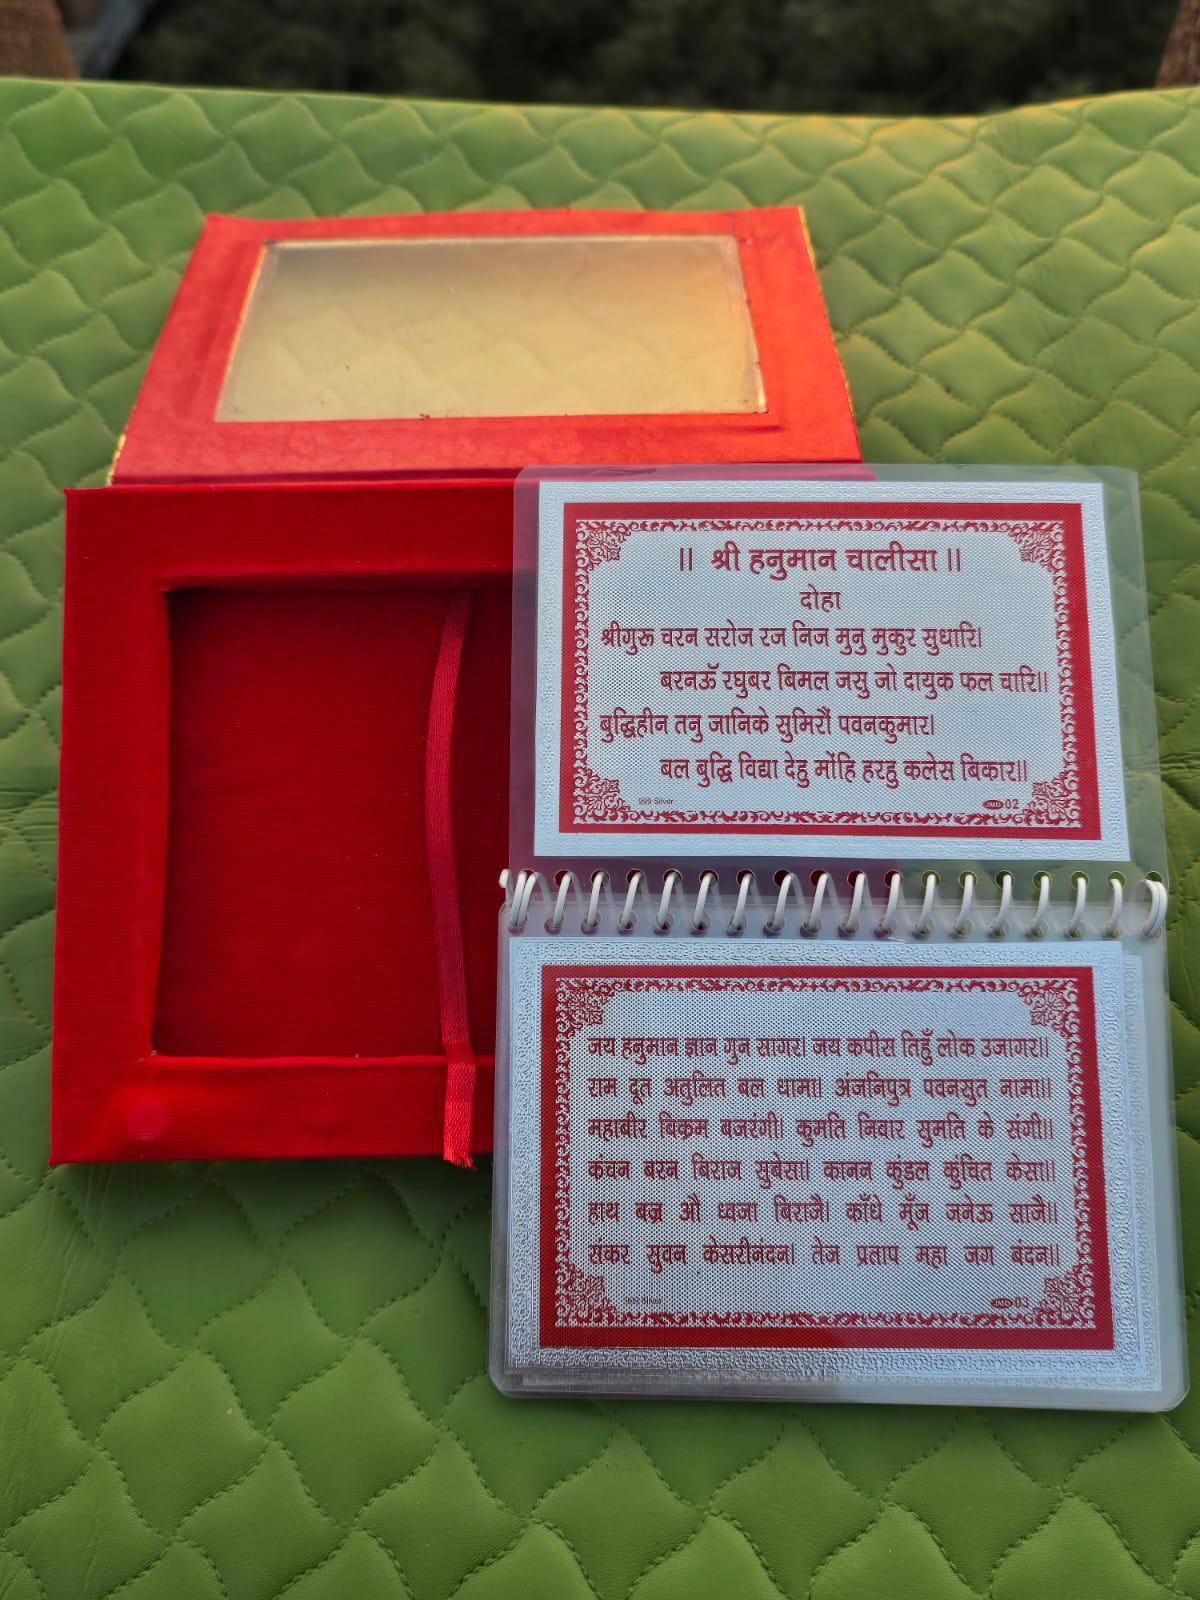 ॥ श्री हनुमान चालीसा ॥
दोहा
श्रीगुरू चरन सरोज रज निज मुनु मुकुर सुधारि।
बरनऊँ रघुबर बिमल जसु जो दायुक फल चारि॥
बुद्धिहीन तनु जानिके सुमिरौं पवनकुमार।
बल बुद्धि विद्या देहु मोंहि हरहु कलेस बिकार॥
999 Silver
JMD 02
जय हनुमान ज्ञान गुन सागर। जय कपीस तिहुँ लोक उजागर॥
राम दूत अतुलित बल धामा। अंजनिपुत्र पवनसुत नामा॥
महाबीर बिक्रम बजरंगी। कुमति निवार सुमति के संगी॥
कंचन बरन बिराज सुबेसा। कानन कुंडल कुंचित केसा॥
हाथ बज्र औ ध्वजा बिराजै। काँधे मूँज जनेऊ साजै॥
संकर सुवन केसरीनंदन। तेज प्रताप महा जग बंदन॥
999 Silver
JMD 03